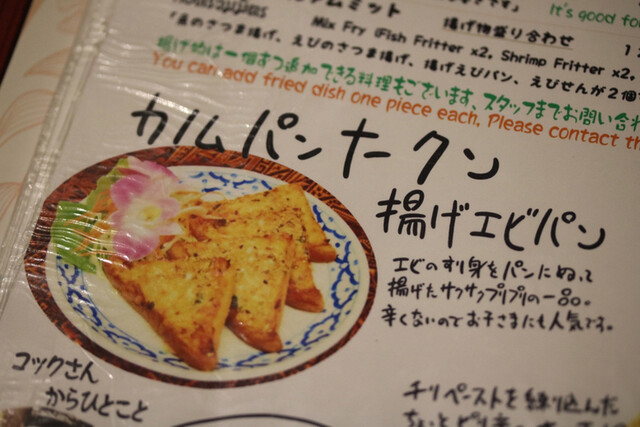 It's good fo
Mix Fry (Fish Fritter x2, Shrimp Fritter x2,
揚げ物盛り合わせ
えびのさつま揚げ、揚げえびパン、えびせんが2個
揚げ物は一個ずつ追加できる料理もございます。スタッフまでお問い合わ
You can add fried dish one piece each. Please contact th
カノムパンナークン
揚げエビパン
エビのすり身をパンにぬって
揚げたサクサクプリプリの一品。
辛くないのでお子さまにも人気です。
コックさん
からひとこと
チリペーストを練り込んだ